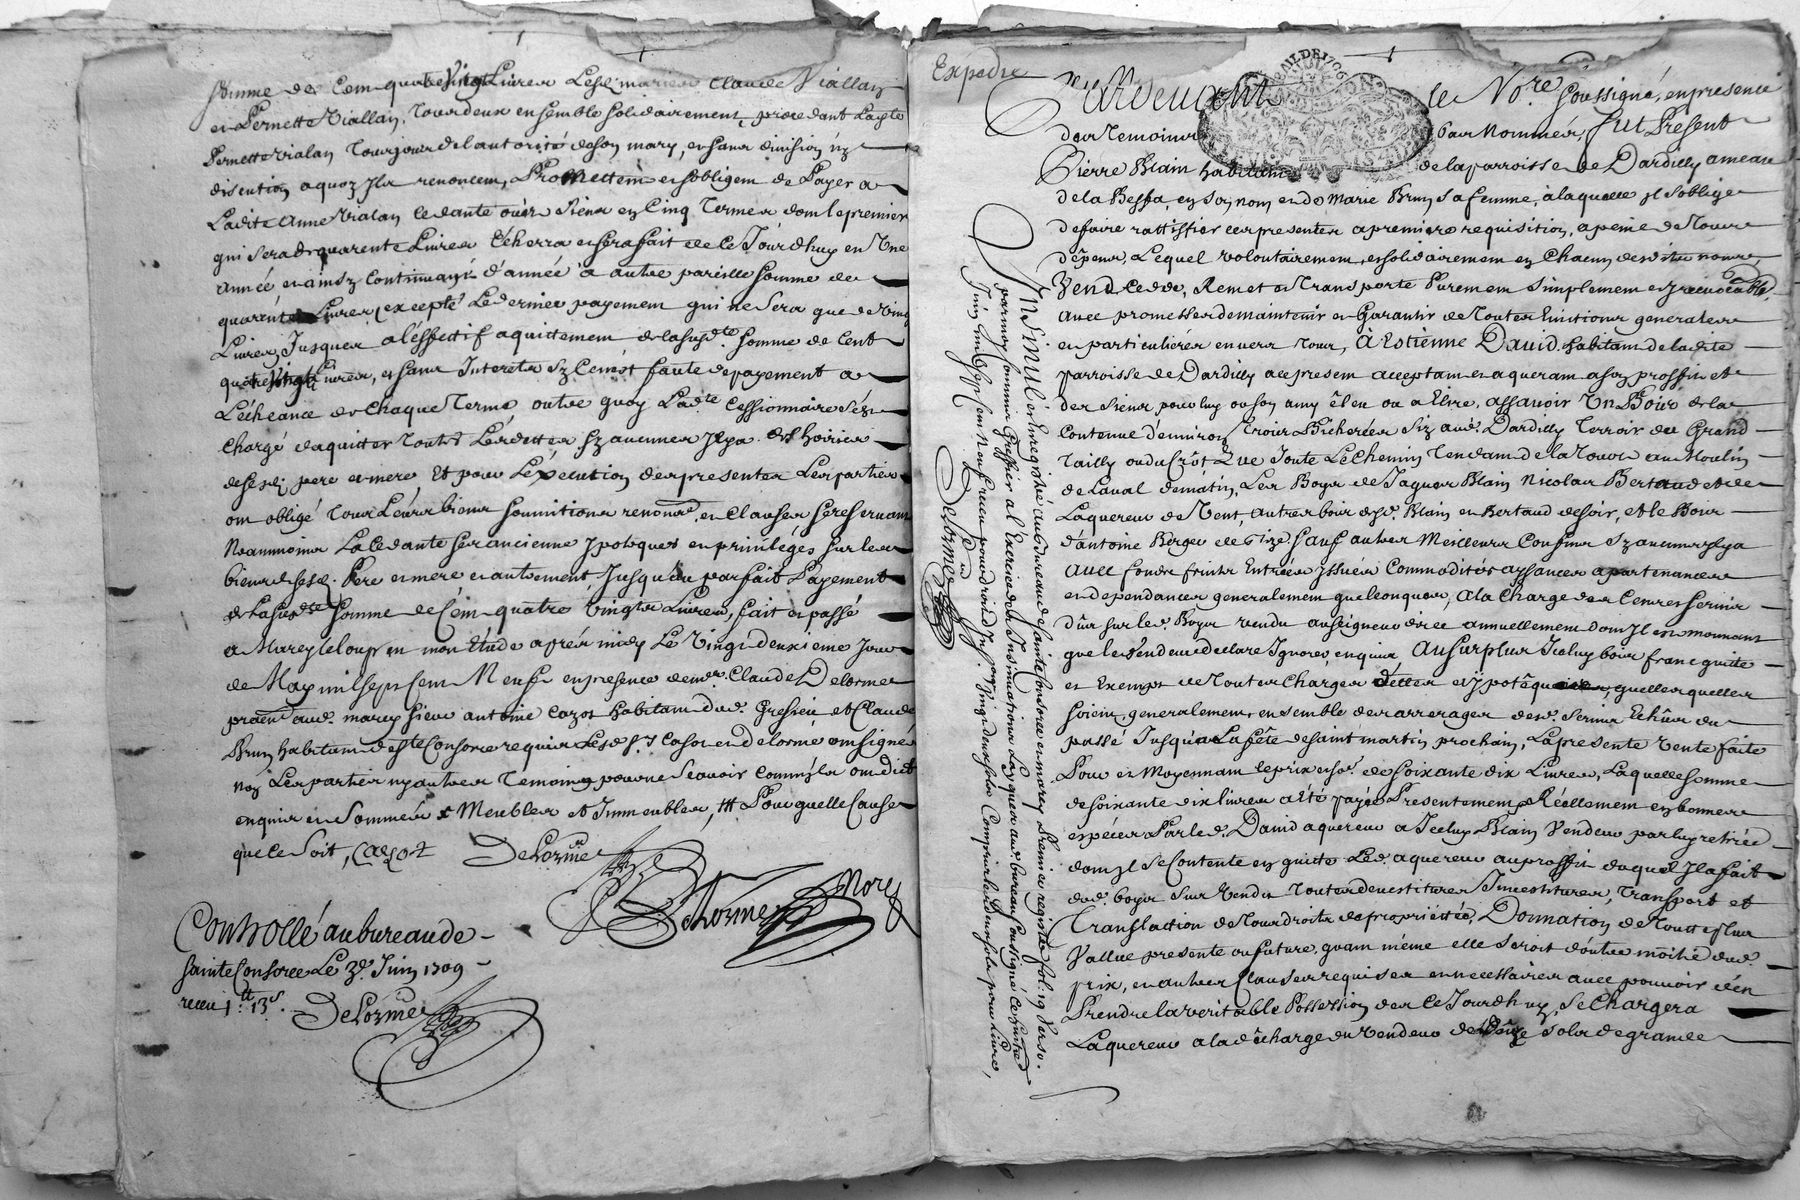 somme de Cent quatre Vingt Livres Lesd. mariés Claude Viallan
et Pernette Viallan, Tous deux ensemble solidairement, procedant Laditte
Pernette Vialan Tousjours de l'autorité de son mary, et sans division ny
discution a quoy Ils renoncent, Promettent et s'obligent de Payer a
Ladite Anne Vialan cedante ou és siens en Cinq Termes dont le premier
qui sera de quarente Livres Écherra et sera fait de ce Jourdhuy en Une
année et ainsy Continuant d'année à autre pareille somme de
quarente Livres excepté Le dernier payement qui ne sera que de Vingt
Livres, Jusques a l'effectif aquittement de la susd.te somme de Cent
quatre Vingt Livres, et sans Interets sy Ce n'est faute de payement a
L'écheance de Chaque Terme, outre quoy Lad.te Cessionnaire s'est
Chargé d'aquitter Toutes Les dettes sy aucunes Il y a des hoiries
de sesd. pere et mere Et pour L'éxecution des presentes Les parties
ont obligé Tous Leurs biens soumitions renonc.ons et Clauses se reservant
Neanmoins La Cedante ses anciennes Ypoteques et privileges sur les
biens de sesd. Pere et mere et autrement Jusqu'au parfait Payement
de La susd.te somme de Cent quatre Vingts Livres, fait et passé
a Marcy le loup en mon Etude aprés midy Le Vingt deuxieme Jour
de May mil sept Cent Neuf en presence de m.re Claude Delorme
praticien aud. marcy sieur antoine cazot habitant dud. Gresieu et Claude
Brun habitant de S.te Consorce requis Lesd. s.rs Casot et delorme ont signé
Non Les parties ny autre Temoing pour ne Scavoir Comm'Ils ont dict
enquis et Sommés x Meubles et Immeubles, ttt Pour quelle Cause
que ce Soit, Cazot Delorme
Delorme Nore
Controllé au bureau de
Sainte Consorce Le 3.e Juin 1709
receu 1.tt 13.s Delorme
Expedié
Pardevant le No.re soussigné, en presence
des Temoins bas Nommés, fut Present
Pierre Blain habitant de la parroisse de Dardilly ameau
de la Beffa, en son nom et de Marie Brun sa femme, à laquelle Il s'oblige
de faire rattiffier ces presentes a premiere requisition, a peine de Tous
dépens, Lequel volontairement, et solidairement
Vend Cedde, Remet et Transporte Purement simplement et Irrevocable.
avec promesses de maintenir et Garantir de Toutes Evictions generales
et particulieres envers Tous, à Estienne David habitant de ladite
parroisse de Dardilly ace present acceptant et aquerant a son proffit et
des siens pour luy ou son amy éleu ou a Elire, assavoir Un Bois de la
Contenue d'environ Trois Bicherées Siz aud. Dardilly Terroir du Grand
Tailly ou du Crôt Que Joute Le Chemin Tendant de la Tour au Moulin
de Laval de matin, Les Boys de Jaques Blain Nicolas Bertaud et de
L'aquereur de Vent, autres bois desd. Blain et Bertaud de soir, et le Bois
d'antoine Berger de bize, sauf autres Meilleurs Confins sy aucuns y a
avec fonds fruits Entrées Issües Commodités aysances apartenances
et dependances generalement quelconques, a la Charge des Cens et servis
dûs sur led. Boys vendu au seigneur direc annuellement dont Il est mouvant
que le Vendeur declare Ignorer, enquis Au surplus Iceluy bois franc quitte
et Exempt de Toutes Charges dettes et ypotêques quelles quelles
soient, generalement, ensemble des arrerages desd. Servis Echûs du
passé Jusqu'a La fête de saint martin prochain, La presente Vente faite
Pour et Moyennant le prix et so.e de soixante dix Livres, Laquelle somme
de soixante dix livres a été payée Presentement et Réellement en bonnes
espéces Par led. David aquereur a Iceluy Blain Vendeur par luy retirée
dont Il se Contente en quitte Led. aquereur au proffit duquel Il a fait
dud. boys sus Vendu Toutes devestitures Investitures, Transport et
Translation de Tous droits de proprietté, Donnation de Toutte plus
Vallue presente ou future, quam même elle seroit d'outre moitié dud.
prix, et autres Clauses requises et necessaires avec pouvoir d'en
Prendre la veritable Possession des Ce Jourd'huy, se Chargera
L'aquereur a la décharge du Vendeur de sols de grande
Insinué et Enregistré au bureau de sainte Consorce en marcy premier registre fol: 19 verso.
par moy commis Greffier al'Exercice des Insinuations Laïques aud. bureau soussigné Ce huit
Juin mil sept Cent Neuf receu pour droit d'Ins. Vingt deux sols Compris les deux sols pour livre,
Delorme